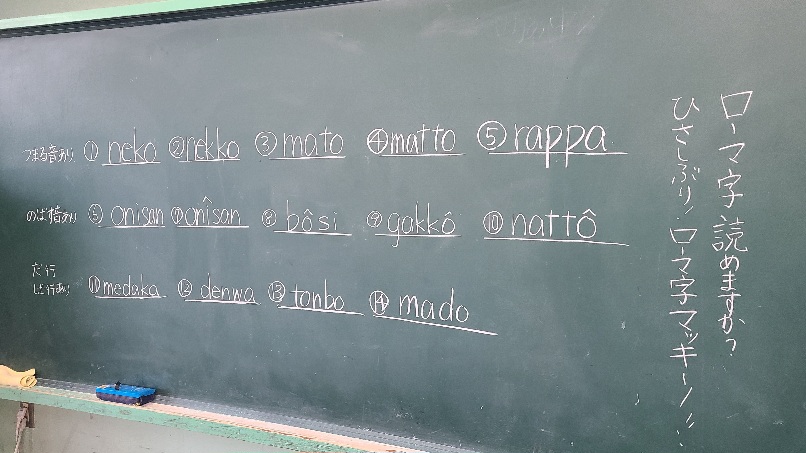 ローマ字、読めますか?
ひさしぶり!ローマ字マッキーノ!!
つまる音あり ① neko ② nekko ③ mato ④ matto ⑤ rappa
のばす音あり ⑥ onisan ⑦ onîsan ⑧ bôsi ⑨ gakkô ⑩ nattô
だ行
ば行あり ⑪ medaka ⑫ denwa ⑬ tonbo ⑭ mado